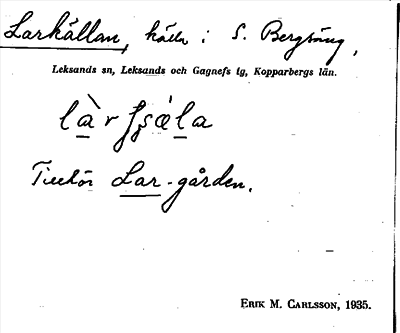 Larkällan, källa i S. Bergsäng,
Leksands sn, Leksands och Gagnefs tg, Kopparbergs län.
Tillhör Lar-gården.
ERIK M. CARLSSON, 1935.